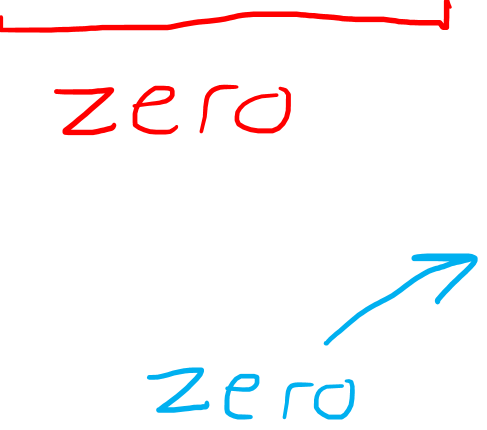 zero
zero